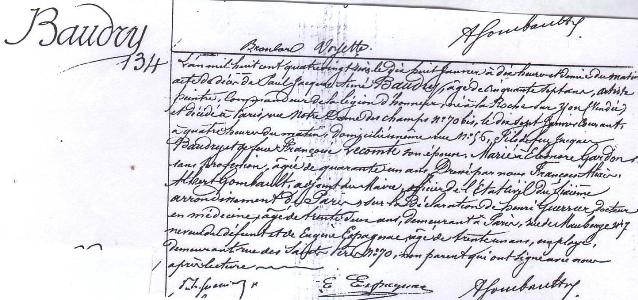 Baudry
134
Broulard Voysette AGombault
L'an mil huit cent quatre vingt six, le dix huit Janvier à dix heures et demie du matin
acte de décès de Paul Jacques Aimé Baudry, âgé de cinquante sept ans, artiste
peintre, Commandeur de la légion d'honneur, né à la Roche sur Yon (Vendée)
et décédé à Paris, rue Notre Dame des champs Nº 70 bis, le dix sept Janvier courant,
à quatre heures du matin, domicilié même rue Nº 56, fils de feu Jacques
Baudry et de feue Françoise Lecomte son épouse, Marié à Eléonore Gardon
sans profession, âgée de quarante un ans. Dressé par nous François Marie
Albert Gombault, adjoint au Maire, officier de l'Etat civil du sixième
arrondissement de Paris, sur la déclaration de Henri Guerrier docteur
en médecine, âgé de trente deux ans, demeurant à Paris, rue de Maubeuge Nº 7
neveu du défunt et de Eugène Espagnac âgé de trente un ans, employé,
demeurant rue des Saints Pères Nº 70, non parent qui ont signé avec nous
après lecture
E Espagnac AGombault